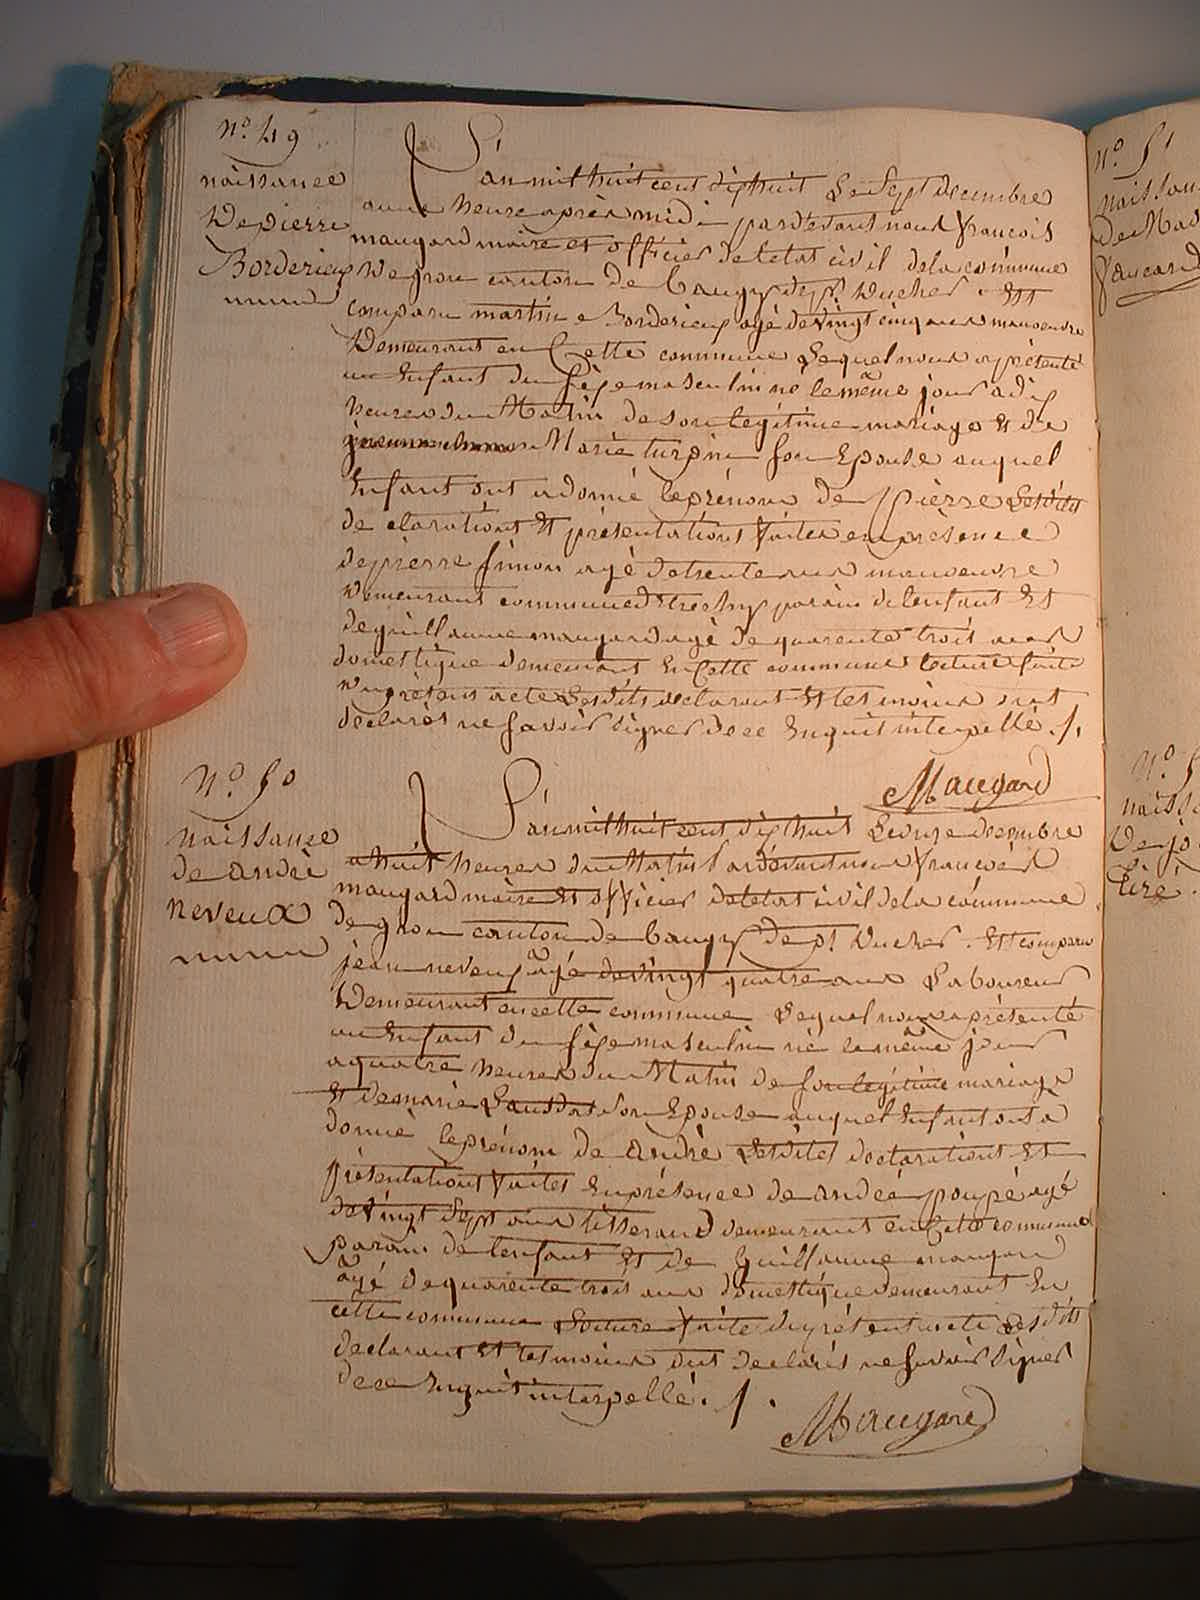 n.o 49
naissance
De pierre
Borderieux
L'an mil huit cent dix huit Le Sept decembre
a une heure après midi pardevant nous françois
maugard maire et officier de letat civil dela commune
De gron canton de Baugy dept Ducher. Est
comparu martin Borderieux agé de vingt cinq ans manoeuvre
Demeurant en Cette commune Lequel nous a présenté
un Enfant du sexe masculin né le même jour a dix
heures du Matin de son legitime mariage Et de
Marie turpin son Epouse auquel
Enfant ont a donné le prénom de pierre Lesdites
declarations Et présentations faites en présence
de pierre simon agé de trente ans manoeuvre
Demeurant commune parain de lenfant Et
de guillaume maugard agé de quarente trois ans
domestique demeurant En Cette commune Lecture faite
Du présent acte Lesdits declarant Et tesmoins ont
declarés ne savoir signer de ce Enquit interpellé ./.
Maugard
N.o 50
naissance
de andré
neveux
L'an mil huit cent dix huit Le onze decembre
a huit heures du Matin Pardevant nous françois
maugard maire Et officier de letat civil de la commune
de gron canton de Baugy De pt Ducher. Est comparu
jean neveux âgé de vingt quatre ans Laboureur
Demeurant en cette commune Lequel nous a présenté
un Enfant du sexe masculin né le même jour
a quatre heures du Matin de son legitime mariage
Et de marie son Epouse auquel Enfant ont a
donné le prénom de André Lesdites declarations Et
présentations faites En présence de andré poupé agé
de vingt Sept ans tisserand demeurant en Cette commune
parain de lenfant Et de Guillaume maugard
âgé de quarente trois ans domestique demeurant En
cette commune Lecture faite du présent acte Lesdits
declarant Et tesmoins ont declarés ne savoir signer
de ce Enquit interpellé. /.
Maugard
n.o 51